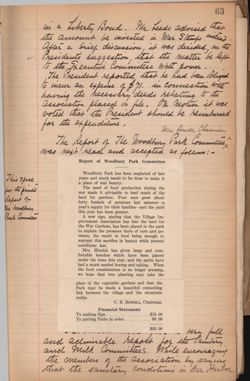 63
in a Liberty Bond. Mr. Leeds advised that
the amount be invested in War Stamps
After a brief discussion, it was decided, on the
President's suggestion, that the matter be left
to the Executive Committee with power.
The President reported that he had been obliged
to incur an expense of $71. in connection with
having the necessary deeds relating to the
Association placed on file. On Motion it was
voted that the President should be reimbursed
for the expenditure.
The Report of The Woodbury Park Committee
was next read and accepted as follows:-
This space
for the printed
Report of
the Woodbury
Park Committee
Report of Woodbury Park Committee
Woodbury Park has been neglected of late
years and much needs to be done to make it
a place of real beauty.
The need of food production during the
war made it advisable to lend much of the
land for gardens. Four men grew about
forty bushels of potatoes last summer, a
year's supply for their families—and the yield
this year has been greater.
A new sign, stating that the Village Im-
provement Association has lent the land for
the War Gardens, has been placed in the park
to explain the presence there of cots and po-
tatoes, the result in food being enough to
warrant this sacrifice in beauty while present
conditions last.
Mrs. has given large and com-
fortable benches which have been placed
under the trees this year, and the paths have
had a much needed hoeing and raking. When
the food consideration is no longer pressing,
we hope that tree planting may take the
place of the vegetable gardens and that the
Park may be made a beautiful connecting
link between the village and the mountain
walks.
C. R. Howell, Chairman.
Financial Statement
To making Sign $15.00
To putting Paths in order 80.00
$95.00
very full
and admirable report for the Sanitary
and Milk Committee. While encouraging
the members of the Association by saying
that the sanitary conditions in Bar Harbor